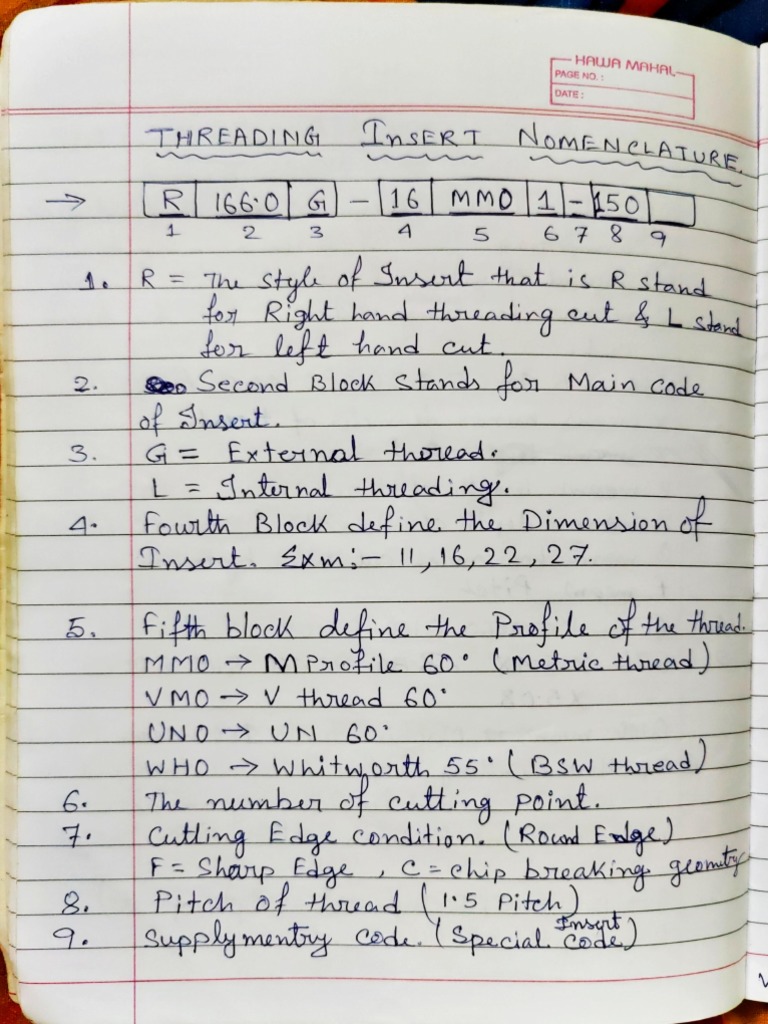 HAWA MAHAL
PAGE NO.:
DATE:
THREADING INSERT NOMENCLATURE.
→ R 166.0 G - 16 MMO 1 - 150
1 2 3 4 5 6 7 8 9
1. R = The style of Insert that is R stand
for Right hand threading cut & L stand
for left hand cut.
2. Second Block Stands for Main code
of Insert.
3. G = External thread.
L = Internal threading.
4. Fourth Block define the Dimension of
Insert. Exm:- 11, 16, 22, 27.
5. Fifth block define the Profile of the thread.
MMO → M Profile 60° (Metric thread)
VMO → V thread 60°
UNO → UN 60°
WHO → Whitworth 55° (BSW thread)
6. The number of cutting point.
7. Cutting Edge condition. (Round Edge)
F = Sharp Edge, C = chip breaking geomitry
8. Pitch of thread (1.5 Pitch)
9. Supplymentry code. (Special Insert code)